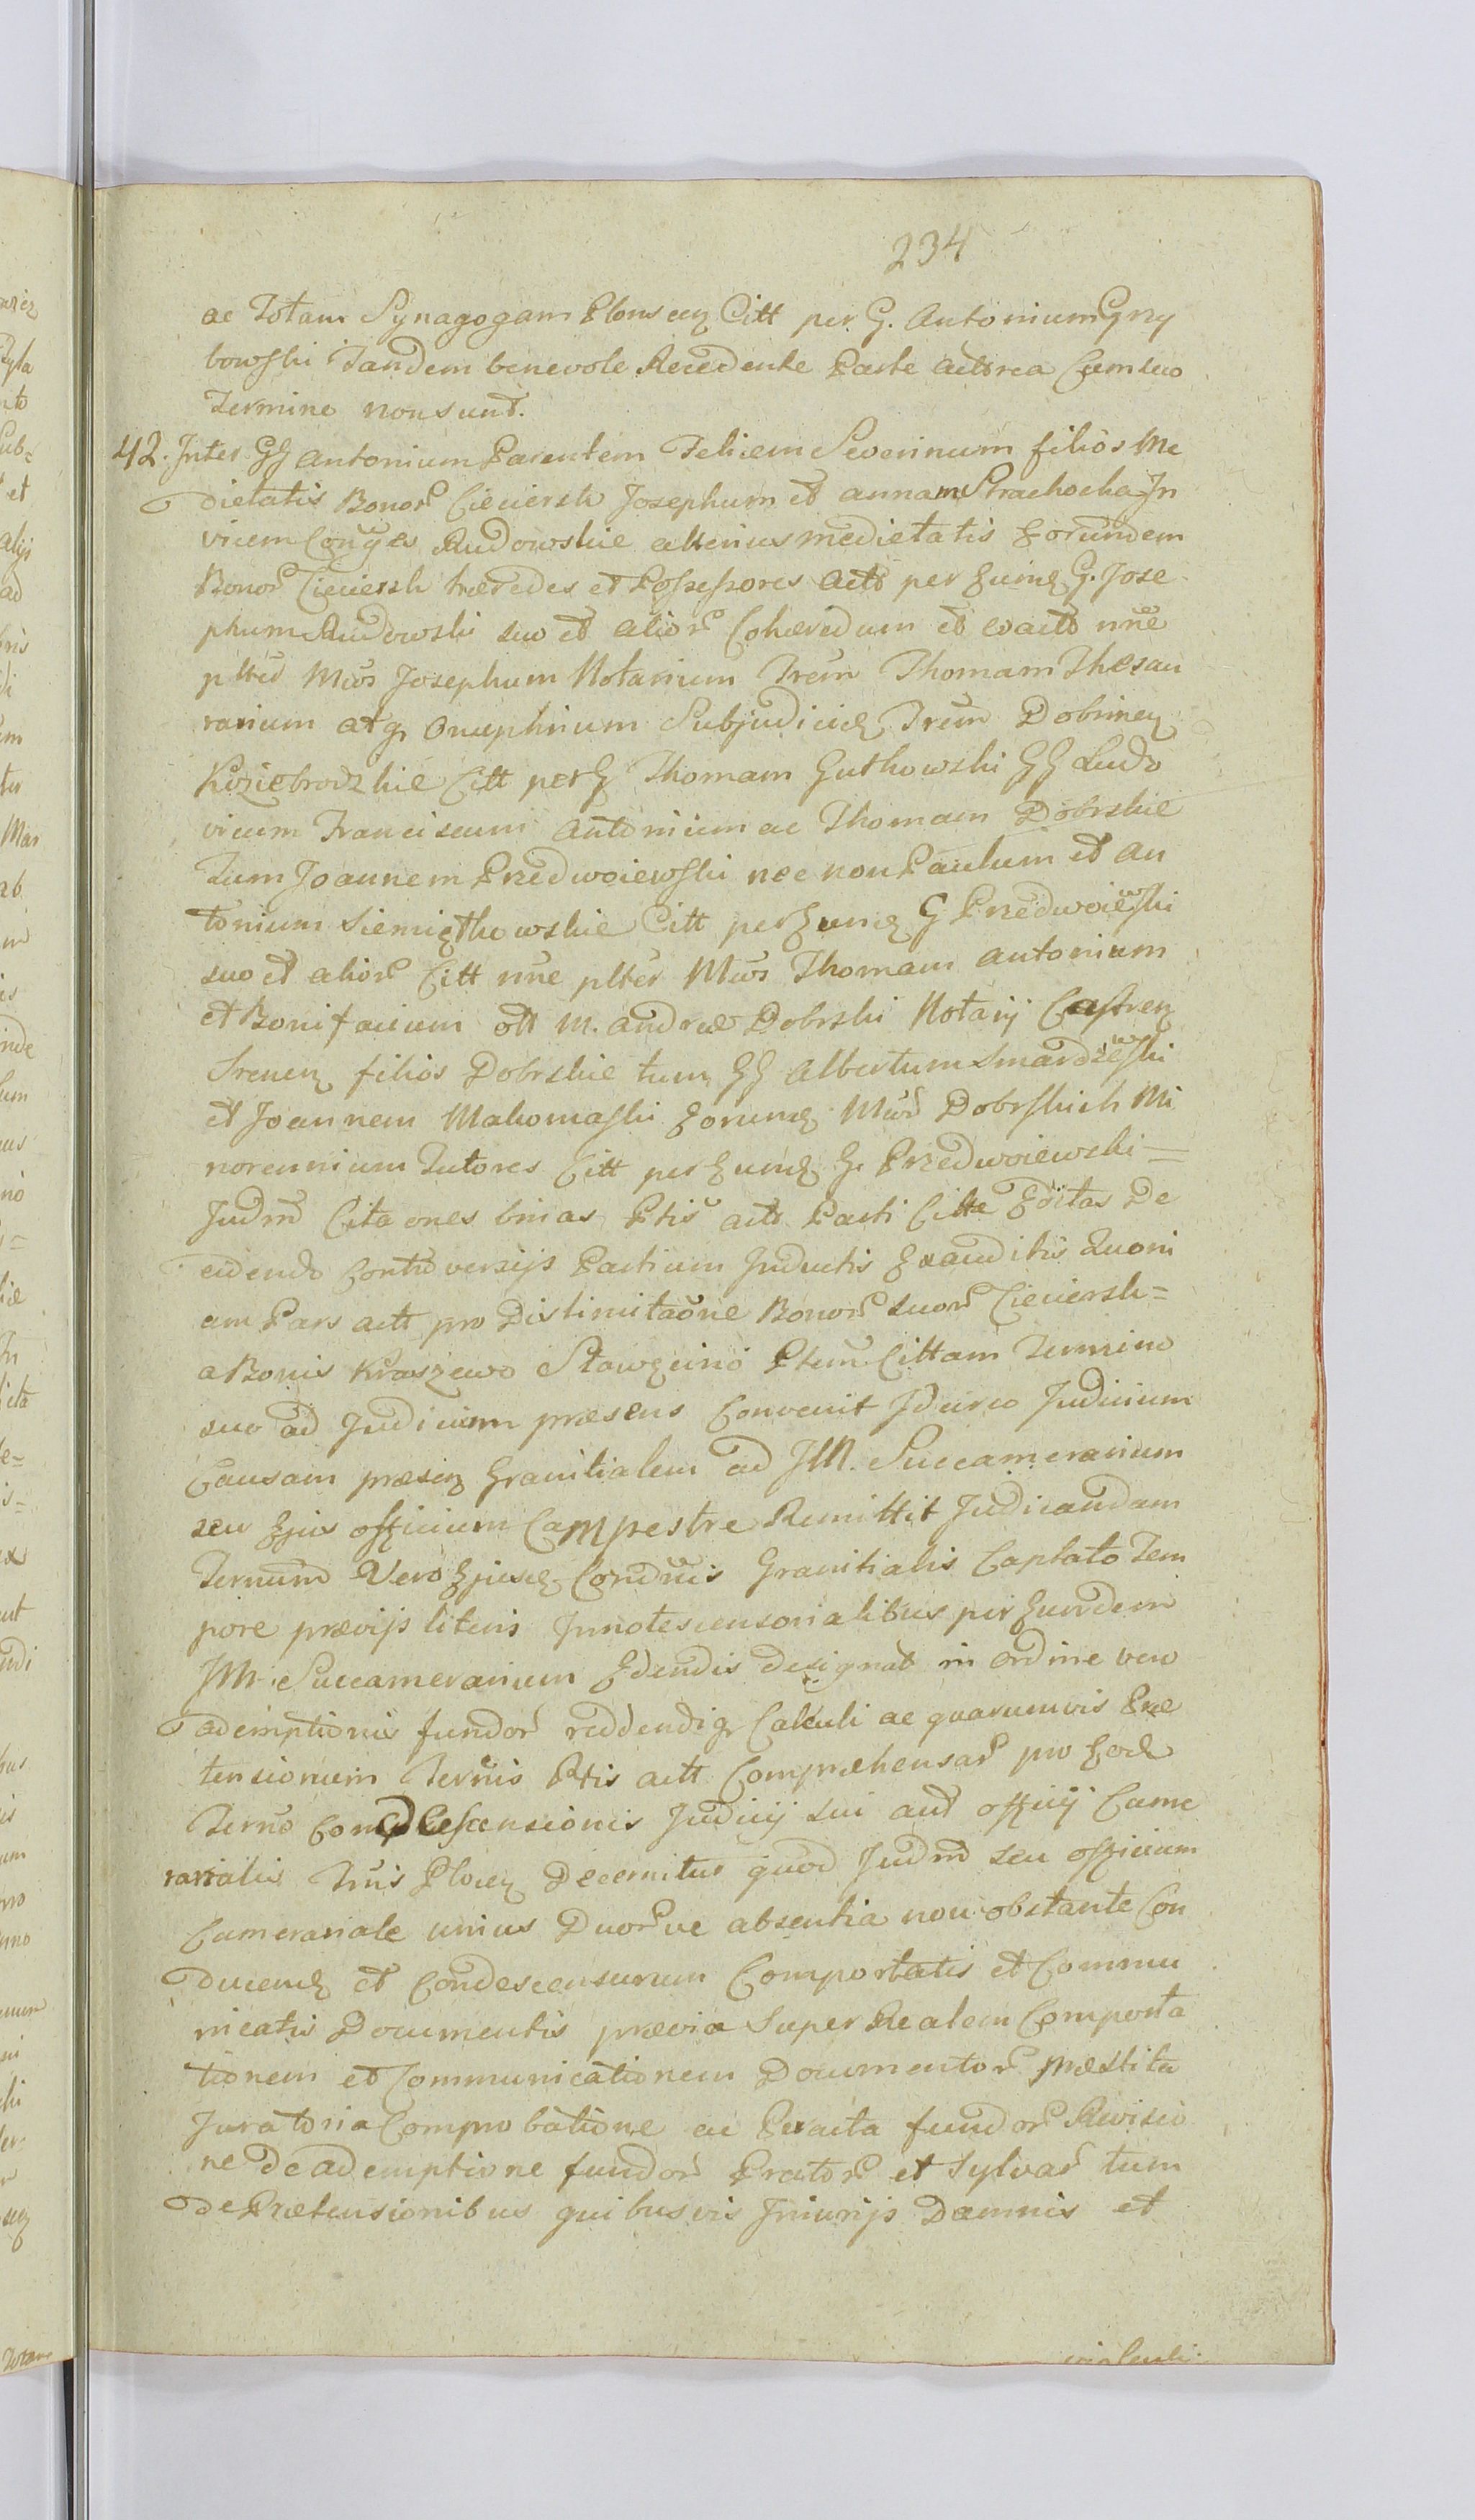 234
ac Totam Synagogam Plonscen Citt per G. Antonium Grzy
bowski Tandem benevole Recedente Parte actorea Cum suo
Termino non sunt.
42. Inter GG Antonium Parentem Felicem Severinum filios Me
dietatis Bonor Ciecierzk Josephum et annam Strachocka In
vicem Conjges Rudowskie alterius medietatis Eorundem
Bonor Ciecierzk hæredes et Possessores Acto per Eund G. Jose
phum Rudowski suo et alior Cohæredum et coacto nne
plter Mcos Josephum Notarium Trem Thomam Thesau
rarium atq Onuphrium Subjudicid Trem Dobrinen
Koziebrodzkie Citt per G Thomam Gutkowski GG Ludo
vicum Franciscum Antonium ac Thomam Dobrskie
Tum Joannem Przedwoiewski nec non Paulum et An
tonium Siemiętkowskie Citt per Eund G Przedwoiewski
suo et alior Citt nne plter Mcos Thomam Antonium
et Bonifacium olt M. Andreæ Dobrski Notarij Castren
Srenen filios Dobrskie tum GG Albertum Smardzewski
et Joannem Makomaski Eorund Mcor Dobrskich Mi
norennium Tutores Citt per Eund G. Przedwoiewski =
Judm Citaones binas Ptis acto Parti Citte Editas De
cidendo Controversijs Partium Inductis Exauditis Quoni
am Pars actt pro Dislimitaone Bonor suor Ciecierzk =
a Bonis Kraszewo Sławęcino Ptem Cittam Termino
suo ad Judicium præsens Convenit Idcirco Judicium
Causam præsen Granitialem ad JM. Succamerarium
seu Ejus officium Campestre Remittit Judicandam
Ternum Vero Ejusd Condnis Granitialis Captato Tem
pore prævijs literis Innotescensorialibus per Eundem
JM. Succamerarium Edendis designat in ordine vero
ademptionis fundor reddendiq Calculi ac quarumvis Præ
tensionum Ternis Ptis actt Compræhensar pro Eode
Terno Condescensionis Judicij sui aut officij Came
rarialis Trris Plocen Decernitur quod Judm seu officium
Camerariale unius Duorve absentia non obstante Con
ducend et Condescensurum Comportatis et Commu
nicatis Documentis prævia super Realem Comporta
tionem et Communicationem Documentor præstita
Juratoria Comprobatione ac Peracta fundor Revisio
ne De ademptione fundor Prator et Sylvar tum
De Prætensionibus quibusvis Injurijs Damnis et
violenti